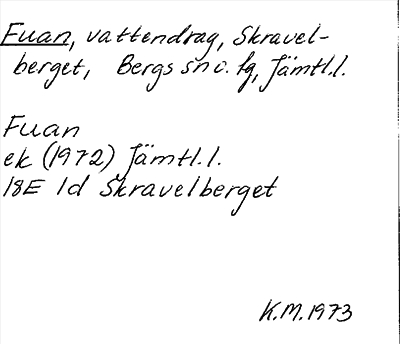 Fuan, vattendrag, Skravel-
berget, Bergs sn o. tg, Jämtl.l.
Fuan
ek (1972) Jämtl.l.
18E 1d Skravelberget
K.M.1973